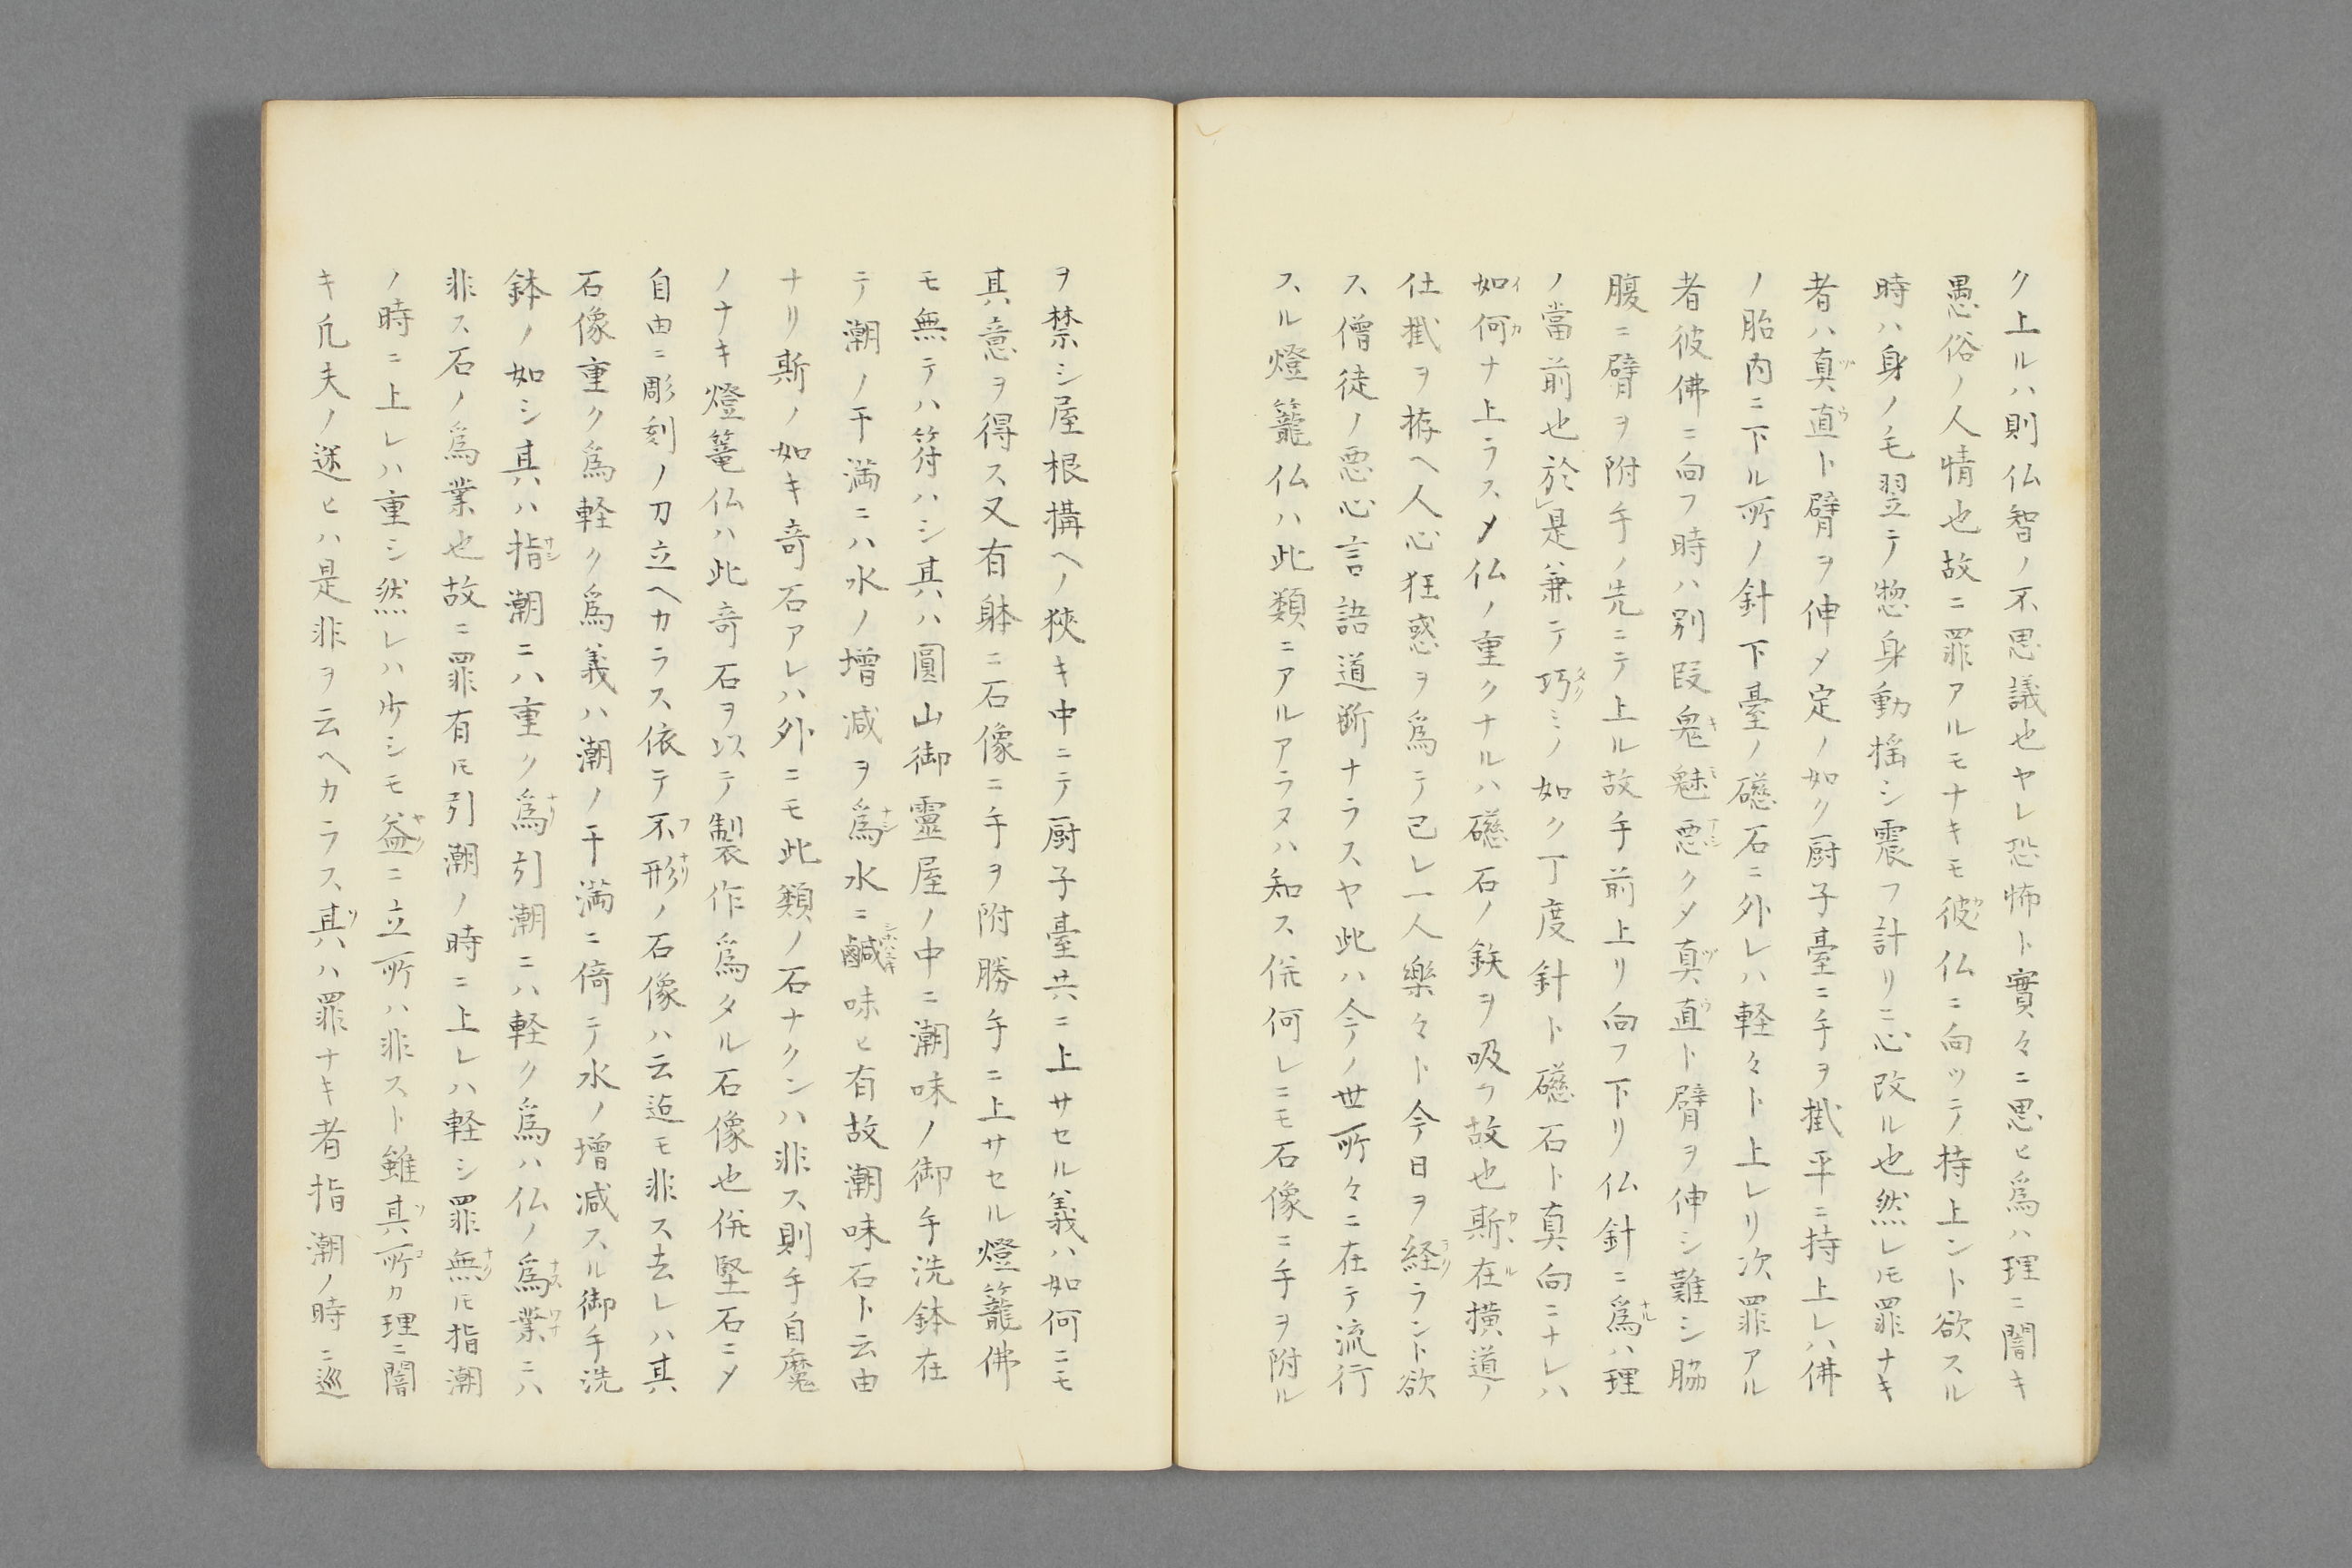 ク上ルハ則仏智ノ不思議也ヤレ恐怖ト實々ニ思ヒ爲ハ理ニ闇キ
愚俗ノ人情也故ニ罪アルモナキモ彼仏ニ向ッテ持上ント欲スル
時ハ身ノ毛竪テ惣身動揺シ震フ計リニ心改ル也然レ𪜈罪ナキ
者ハ真直ト臂ヲ伸〆定ノ如ク厨子臺ニ手ヲ掛平ニ持上レハ佛
ノ胎内ニ下ル所ノ針下臺ノ礠石ニ外レハ軽々ト上レリ次罪アル
者彼佛ニ向フ時ハ別段鬼魅悪ク〆真直ト臂ヲ伸シ難シ脇
腹ニ臂ヲ附手ノ先ニテ上ル故手前上リ向フ下リ仏針ニ爲ハ理
ノ當前也於是兼テ巧ミノ如ク丁度針ト礠石ト真向ニナレハ
如何ナ上ラス〆仏ノ重クナルハ礠石ノ鉄ヲ吸フ故也斯在横道ノ
仕掛ヲ拵ヘ人心狂惑ヲ爲テ己レ一人樂々ト今日ヲ経ラント欲
ス僧徒ノ悪心言語道断ナラスヤ此ハ今ノ世所々ニ在テ流行
スル燈籠仏ハ此類ニアルアラヌハ知ス併何レニモ石像ニ手ヲ附ル
ヲ禁シ屋根構ヘノ狹キ中ニテ厨子臺共ニ上サセル義ハ如何ニモ
其意ヲ得ス又有躰ニ石像ニ手ヲ附勝手ニ上サセル燈籠佛
モ無テハ符ハシ其ハ圓山御靈屋ノ中ニ潮味ノ御手洗鉢在
テ潮ノ干満ニハ水ノ増減ヲ爲水ニ鹹味ヒ有故潮味石ト云由
ナリ斯ノ如キ竒石アレハ外ニモ此類ノ石ナクンハ非ス則手自魔
ノナキ燈篭仏ハ此竒石ヲ以テ製作爲タル石像也併堅石ニ〆
自由ニ彫刻ノ刀立ヘカラス依テ不形ノ石像ハ云迠モ非ス去レハ其
石像重ク爲軽ク爲義ハ潮ノ干満ニ倚テ水ノ増減スル御手洗
鉢ノ如シ其ハ指潮ニハ重ク爲引潮ニハ軽ク爲ハ仏ノ爲業ニハ
非ス石ノ爲業也故ニ罪有𪜈引潮ノ時ニ上レハ軽シ罪無𪜈指潮
ノ時ニ上レハ重シ然レハ少シモ益ニ立所ハ非スト雖其所カ理ニ闇
キ凡夫ノ迷ヒハ是非ヲ云ヘカラス其ハ罪ナキ者指潮ノ時ニ巡